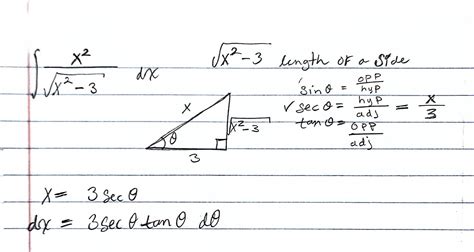 ∫ x² / √(x² − 3) dx
√(x² − 3) length of a side
sin θ = opp/hyp
✓ sec θ = hyp/adj = x/3
tan θ = opp/adj
x
√(x² − 3)
θ
3
x = 3 sec θ
dx = 3 sec θ tan θ dθ